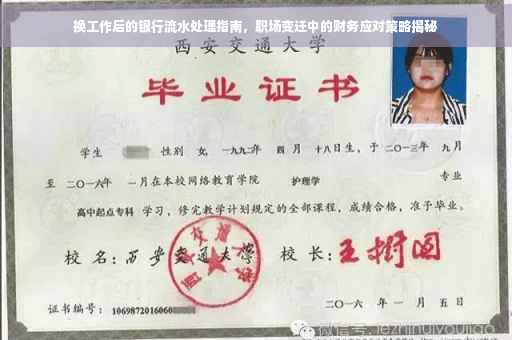 换工作后的银行流水处理指南，职场变迁中的财务应对策略揭秘
西安交通大学
毕业证书
学生 性别 女，一九九二年 四月 十八日生，于 二〇一三年 九月
至 二〇一六年 一月在本校网络教育学院 护理学 专业
高中起点专科 学习，修完教学计划规定的全部课程，成绩合格，准予毕业。
校 名：西安交通大学 校 长：王树国
西安交通大学
证书编号：1069872016060
二〇一六 年 一 月 五 日
微信号: lezhinuiyoujiao